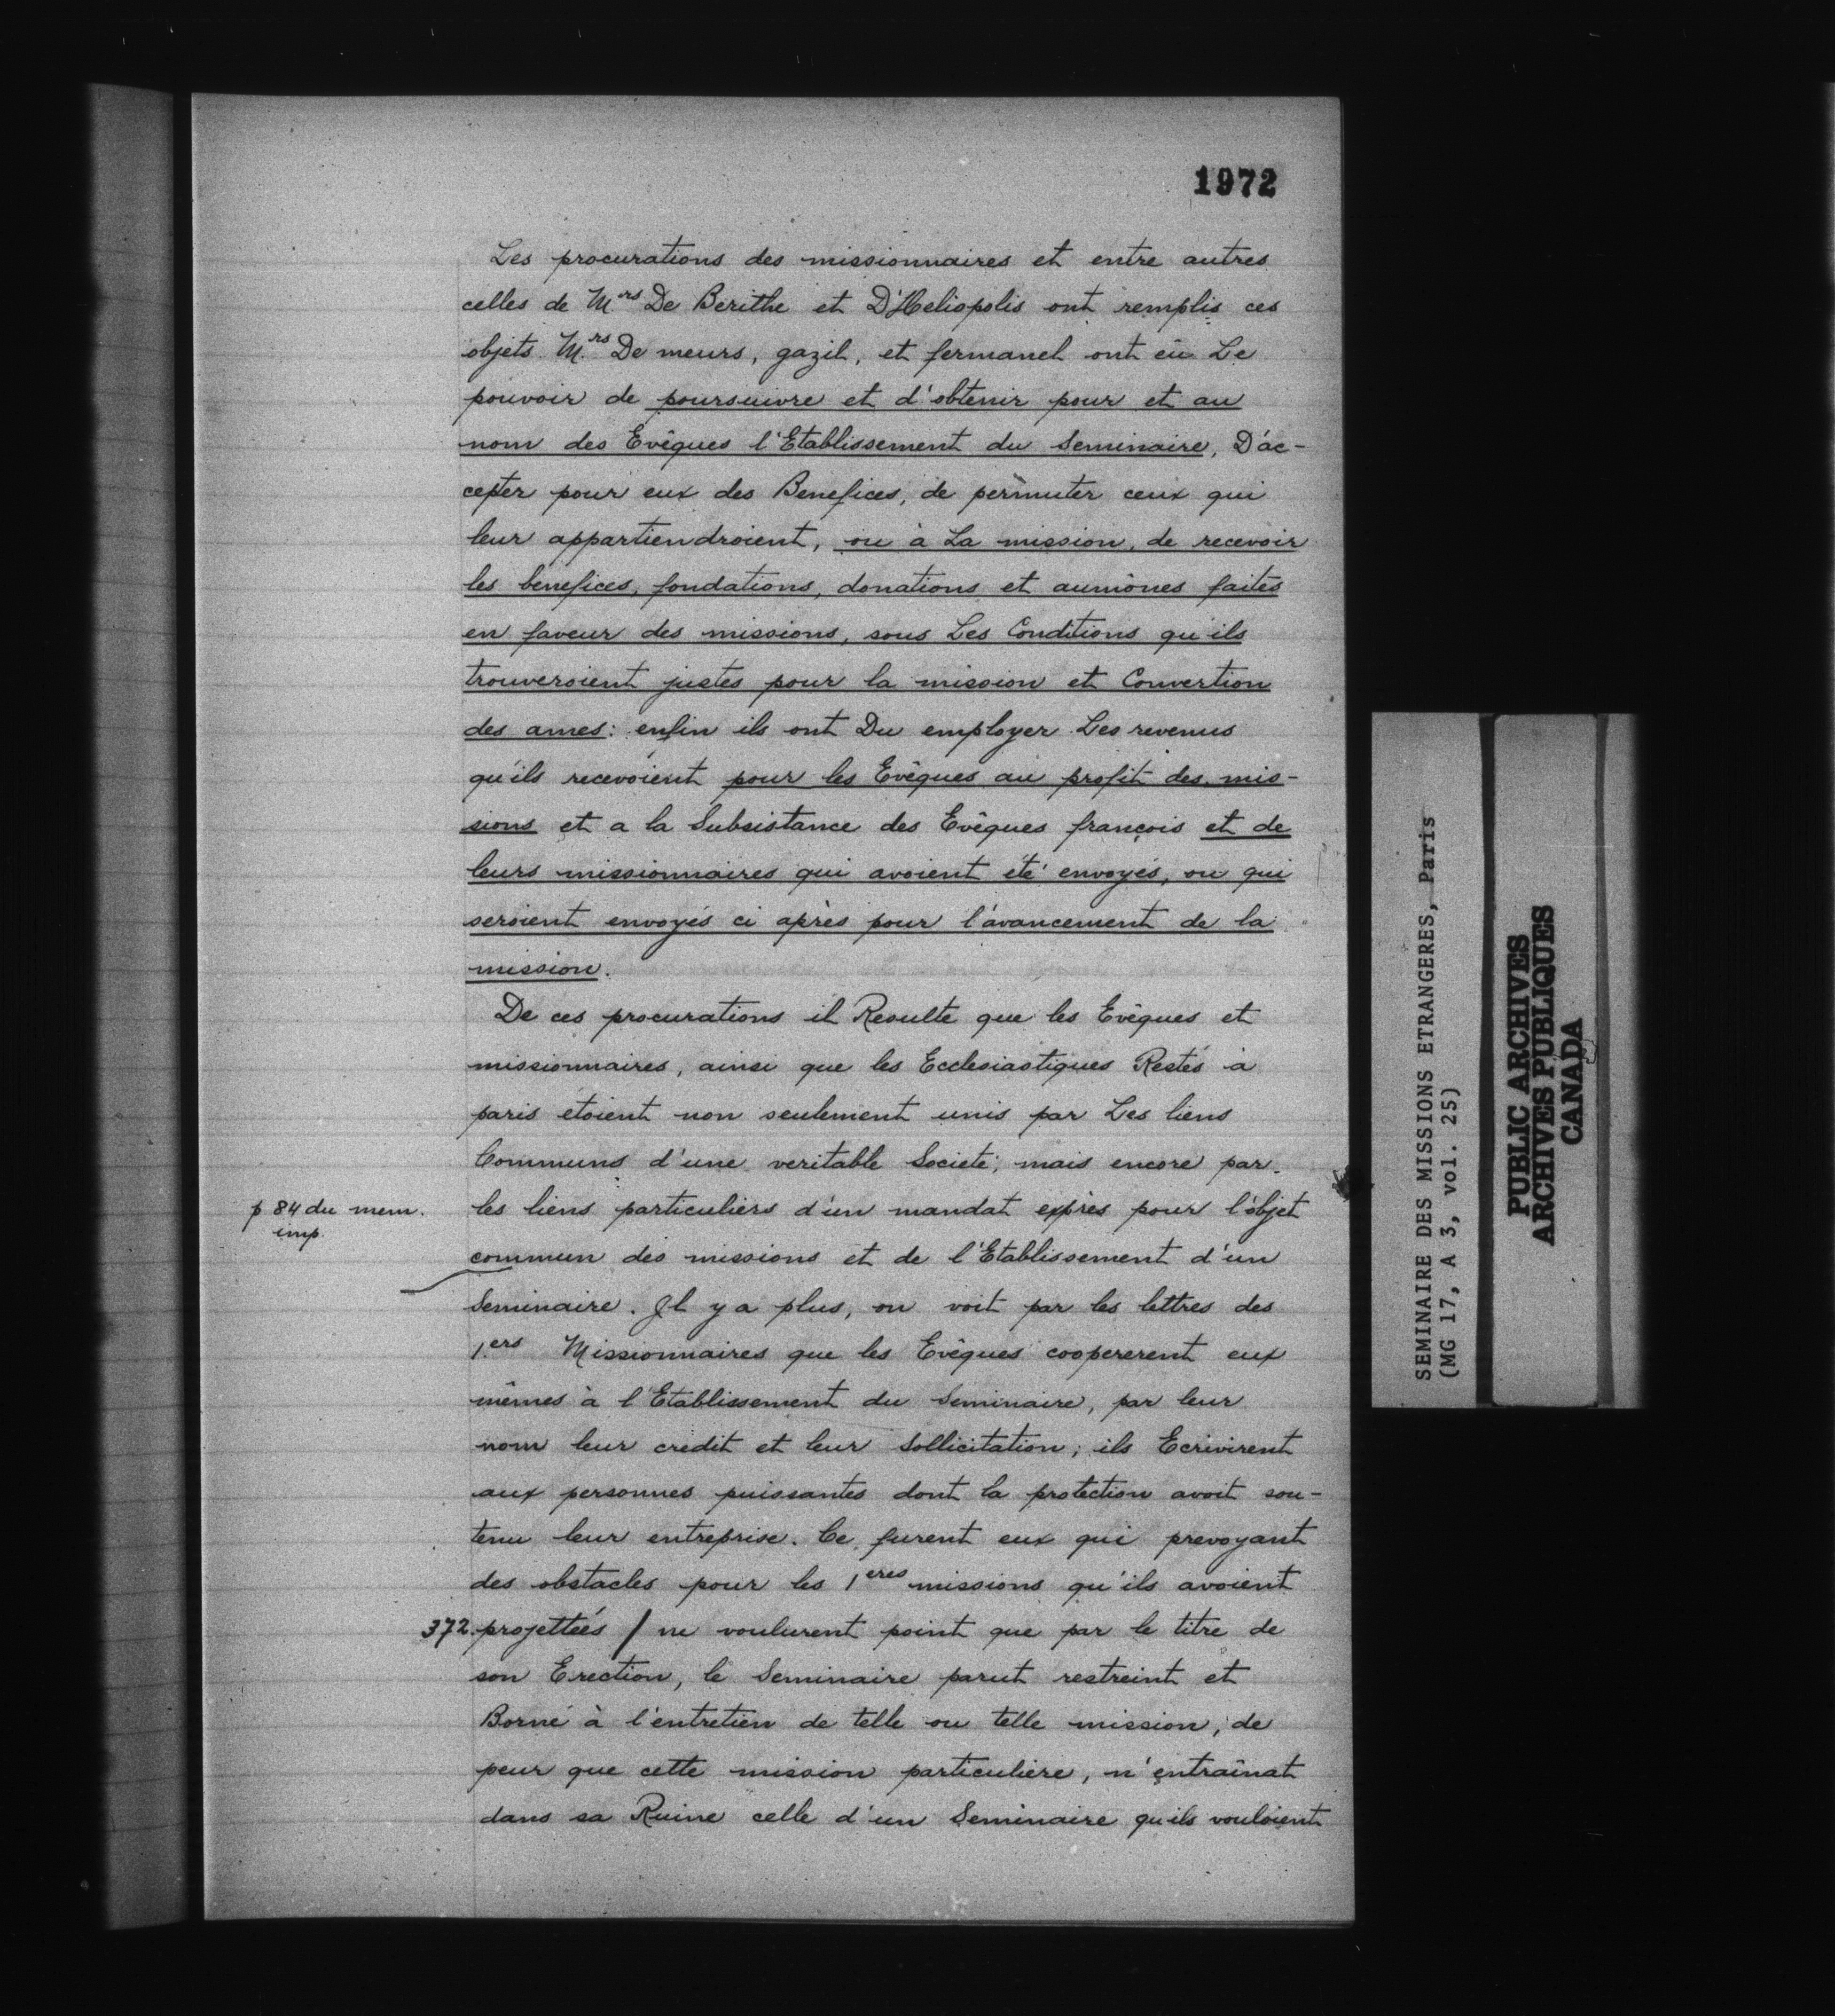 1972
Les procurations des missionnaires et entre autres
celles de Mrs De Berithe et D'Heliopolis ont remplis ces
objets. Mrs De meurs, gazil, et fermanel ont eû Le
pouvoir de poursuivre et d'obtenir pour et au
nom des Evêques l'Etablissement du Seminaire, D'ac-
cepter pour eux des Benefices, de permuter ceux qui
leur appartiendroient, ou à La mission, de recevoir
les benefices, fondations, donations et aumônes faites
en faveur des missions, sous Les Conditions qu'ils
trouveroient justes pour la mission et Convertion
des ames: enfin ils ont Du employer Les revenus
qu'ils recevoient pour les Evêques au profit des mis-
sions et a la Subsistance des Evêques françois et de
leurs missionnaires qui avoient été envoyés, ou qui
seroient envoyés ci après pour l'avancement de la
mission.
De ces procurations il Resulte que les Evêques et
missionnaires, ainsi que les Ecclesiastiques Restés à
paris etoient non seulement unis par Les liens
Communs d'une veritable Societé; mais encore par
p 84 du mem.
imp.
les liens particuliers d'un mandat exprès pour l'objet
commun des missions et de l'Etablissement d'un
Seminaire. Il y a plus, on voit par les lettres des
1.ers Missionnaires que les Evêques coopererent eux
mêmes à l'Etablissement du Seminaire, par leur
nom leur credit et leur Sollicitation; ils Ecrivirent
aux personnes puissantes dont la protection avoit sou-
tenu leur entreprise. Ce furent eux qui prevoyant
des obstacles pour les 1eres missions qu'ils avoient
372. projettées / ne voulurent point que par le titre de
son Erection, le Seminaire parut restreint et
Borné à l'entretien de telle ou telle mission, de
peur que cette mission particuliere, n'entraînat
dans sa Ruine celle d'un Seminaire qu'ils vouloient
SEMINAIRE DES MISSIONS ETRANGERES, Paris
(MG 17, A 3, vol. 25)
PUBLIC ARCHIVES
ARCHIVES PUBLIQUES
CANADA